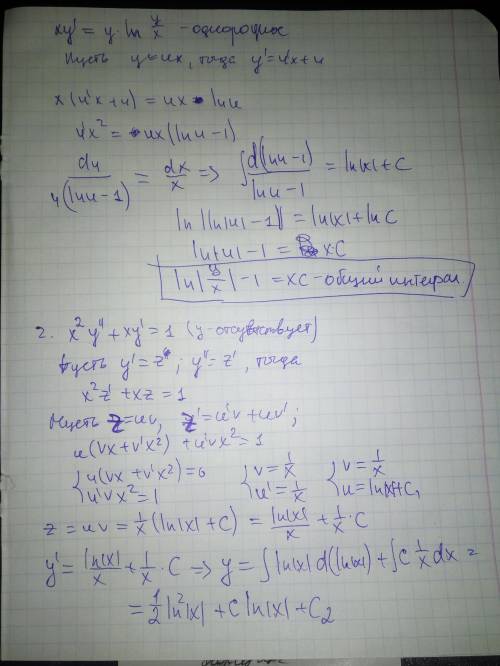 xy' = y·ln y/x - однородное
Пусть y=ux, тогда y'=u'x+u
x(u'x+u) = ux · lnu
u'x² = ux(lnu-1)
du/u(lnu-1) = dx/x => ∫ d(lnu-1)/lnu-1 = ln|x|+C
ln|ln|u|-1| = ln|x|+lnC
ln|u|-1 = xC
ln|y/x|-1 = xC - общий интеграл
2. x²y''+xy'=1 (y-отсутствует)
Пусть y'=z ; y''=z', тогда
x²z'+xz=1
Пусть z=uv, z'=u'v+uv';
u(vx+v'x²)+u'vx²=1
{u(vx+v'x²)=0 {v=1/x {v=1/x
{u'vx²=1 {u'=1/x {u=ln|x|+C₁
z=uv=1/x(ln|x|+C) = ln|x|/x + 1/x·C
y'=ln|x|/x+1/x·C => y=∫ln|x|d(ln|x|)+∫C 1/x dx =
= 1/2 ln²|x|+C ln|x|+C₂